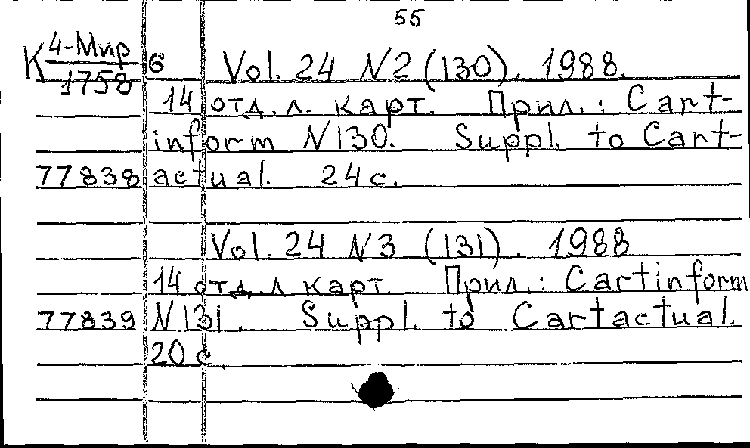 55
К 4-Мир 6 Vol. 24 N2 (130). 1988.
1758
14 отд. л. карт. Прил.: Cart-
inform N130. Suppl. to Cart-
77838 actual. 24 с.
Vol. 24 N3 (131). 1988
14 отд. л карт Прил.: Cartinform
77839 N131. Suppl. to Cartactual.
20 с.